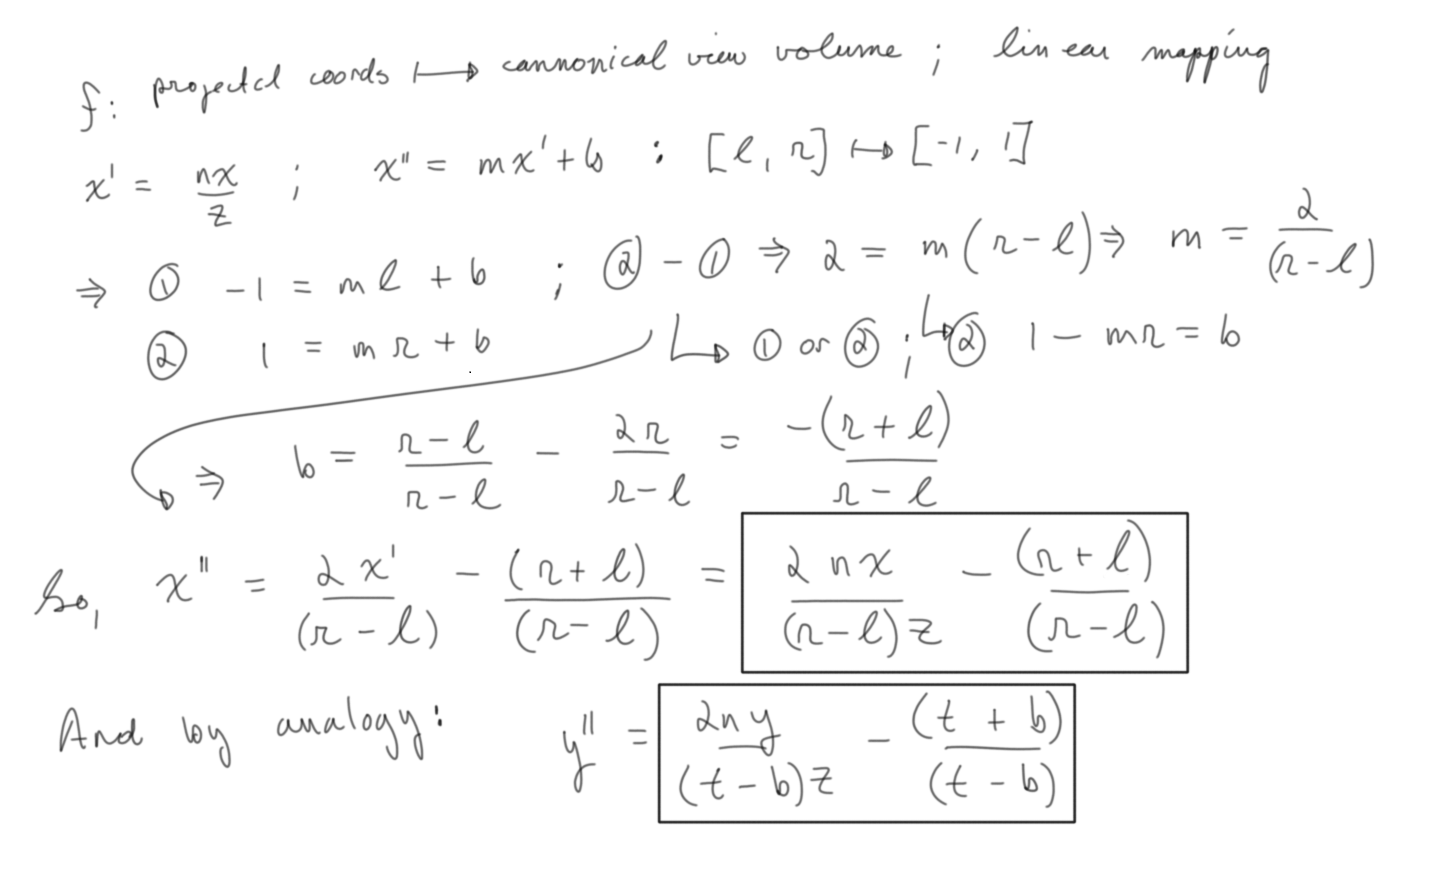 f: projected coords ↦ cannonical view volume ; linear mapping
x' = nx/z ; x'' = mx' + b : [l, r] ↦ [-1, 1]
⇒ ① -1 = ml + b ; ② - ① ⇒ 2 = m(r - l) ⇒ m = 2/(r - l)
② 1 = mr + b ↳ ① or ② ; ↳ ② 1 - mr = b
⇒ b = (r - l)/(r - l) - 2r/(r - l) = -(r + l)/(r - l)
So, x'' = 2x'/(r - l) - (r + l)/(r - l) = 2nx/((r - l)z) - (r + l)/(r - l)
And by analogy: y'' = 2ny/((t - b)z) - (t + b)/(t - b)